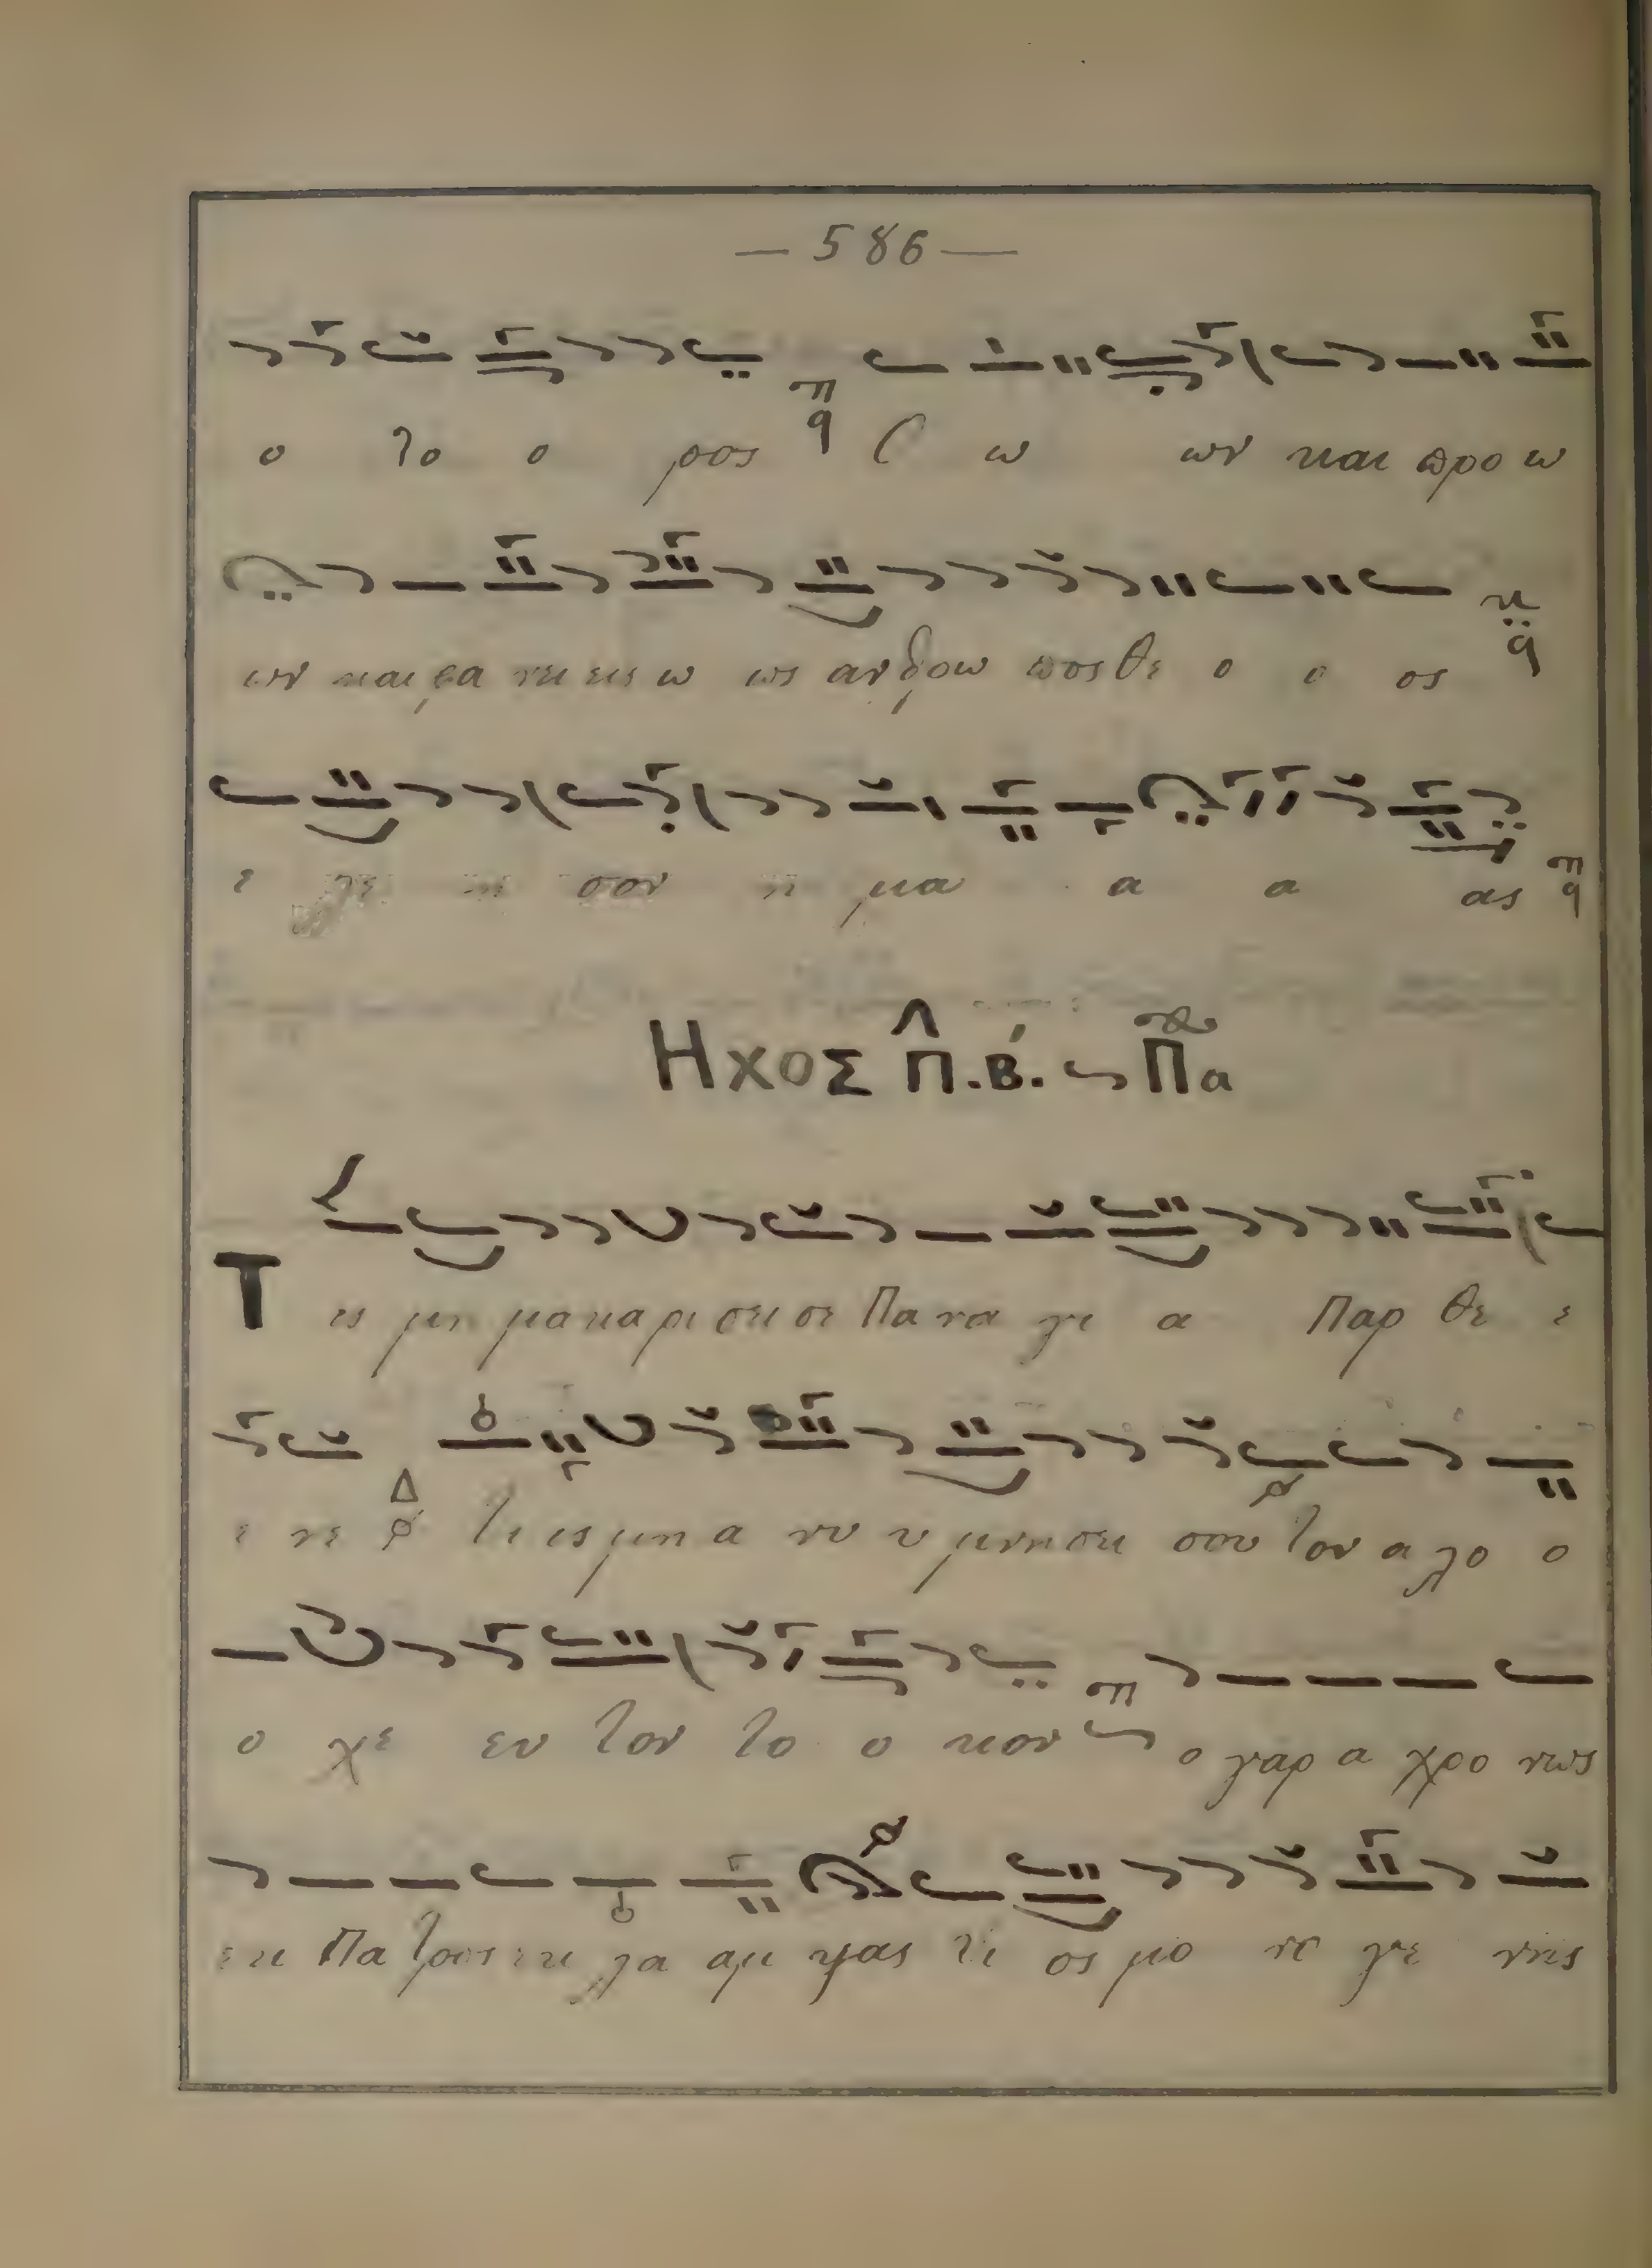 — 586 —
ο το ο ρος ω ων και προ ω
ων και φα νεις ω ως αν θρω πος θε ο ο ος
ε λε η σον η μα α α ας
Ηχος Π.β. Πα
Τις μη μα κα ρι σει σε Πα να γι α Παρ θε ε
ε νε Δ τι ις μη α νυ υ μνη σει σου τον α λο ο
ο χε ευ τον το ο κον ο γαρ α χρο νως
εκ Πα τρος εκ λα αμ ψας Υι ος μο νο γε νης